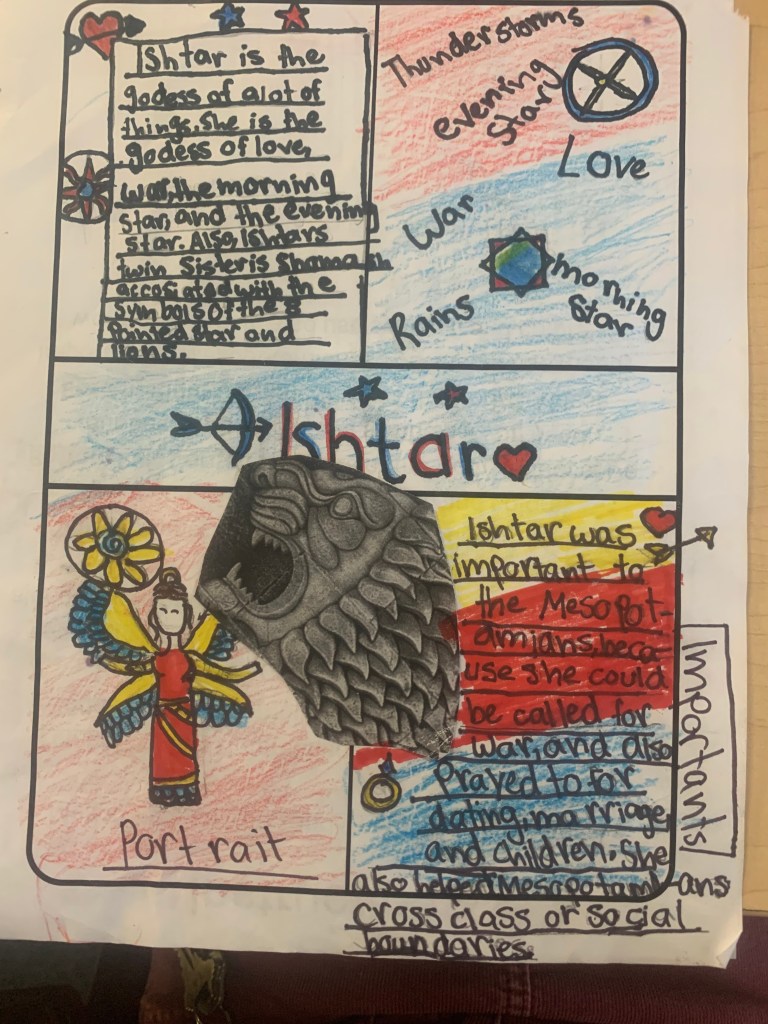 Ishtar is the
godess of alot of
things. She is the
godess of love,
war, the morning
star, and the evening
star. Also, Ishtars
twin Sister is Shamash
accosiated with the
symbols of the 8
pointed star and
lions.
Thunderstorms
evening
Star
Love
War
morning
Star
Rains
Ishtar
Portrait
Ishtar was
important to
the Mesopot-
amians, beca-
use she could
be called for
war, and also
Prayed to for
dating, marriage,
and children. She
also helped Mesopotami-ans
cross class or social
boundaries.
Importants